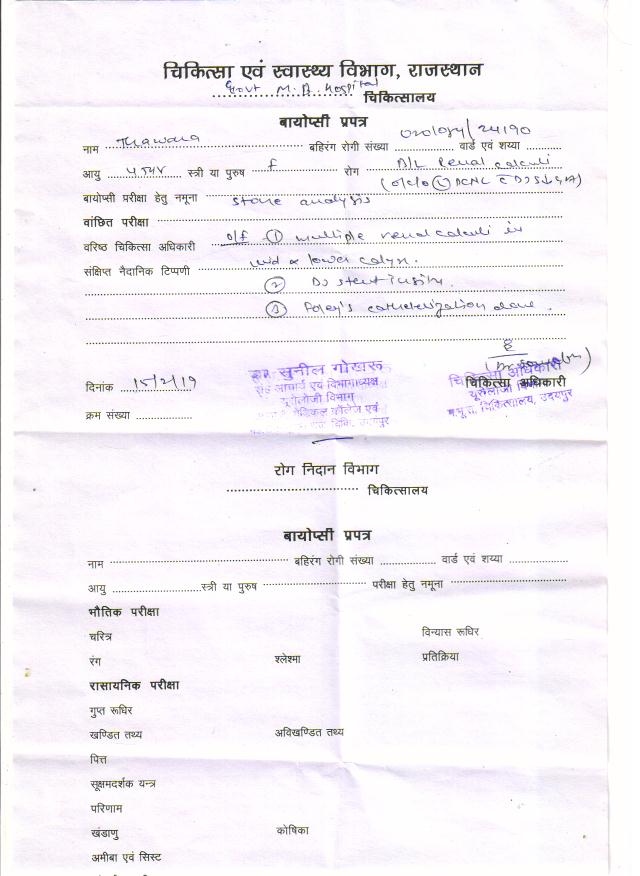 चिकित्सा एवं स्वास्थ्य विभाग, राजस्थान
Govt M.B. Hospital चिकित्सालय
बायोप्सी प्रपत्र
नाम Thawara बहिरंग रोगी संख्या urology/24190 वार्ड एवं शय्या
आयु 45yr स्त्री या पुरुष f रोग B/L Renal calculi
बायोप्सी परीक्षा हेतु नमूना stone analysis
वांछित परीक्षा
वरिष्ठ चिकित्सा अधिकारी o/f ① multiple renal calculi in
संक्षिप्त नैदानिक टिप्पणी mid & lower calyx.
② DJ stent insitu.
③ Foley's catheterization done.
डा. सुनील गोखरू
आचार्य एवं विभागाध्यक्ष
यूरोलोजी विभाग
मेडिकल कॉलेज एवं
उदयपुर
चिकित्सा अधिकारी
चिकित्सा अधिकारी
यूरोलोजी
चिकित्सालय, उदयपुर
दिनांक 15/2/19
क्रम संख्या
रोग निदान विभाग
चिकित्सालय
बायोप्सी प्रपत्र
नाम बहिरंग रोगी संख्या वार्ड एवं शय्या
आयु स्त्री या पुरुष परीक्षा हेतु नमूना
भौतिक परीक्षा
चरित्र विन्यास रूधिर
रंग श्लेश्मा प्रतिक्रिया
रासायनिक परीक्षा
गुप्त रूधिर
खण्डित तथ्य अविखण्डित तथ्य
पित्त
सूक्षमदर्शक यन्त्र
परिणाम
खंडाणु कोषिका
अमीबा एवं सिस्ट